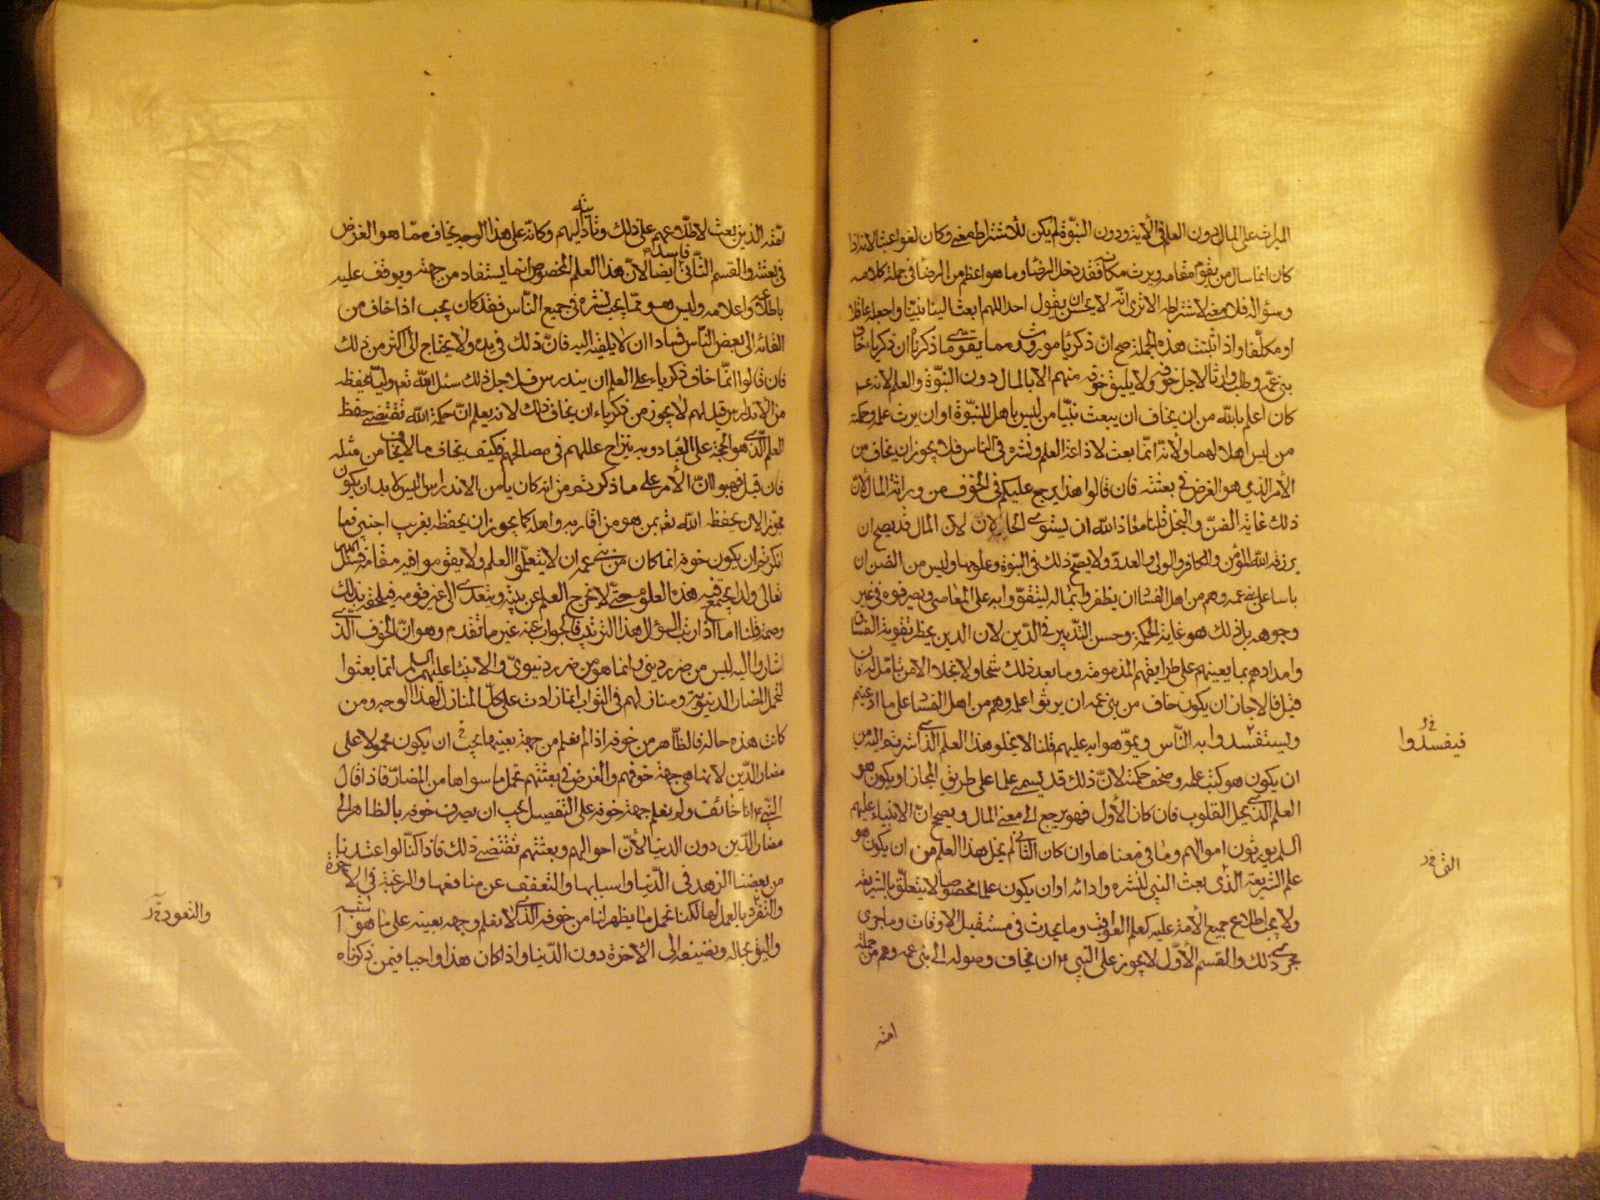 الميراث على المال دون العلم في الآية ودون النبوة لم يكن للاشتراط معنى وكان لغوا عبثا لانه اذا
كان انما سأل من يقوم مقامه ويرث مكانه فقد دخل الرضا وما هو اعظم من الرضا في جملة كلامه
وسؤاله فلا معنى لاشتراطه الا ترى انه لا يحسن ان يقول احد اللهم ابعث الينا نبيا واجعله عاقلا
او مكلفا واذا ثبتت هذه الجملة صح ان زكريا موروث ماله مما يقوي ما ذكرنا ان زكرياء خاف
بني عمه وطلب وارثا لاجل خوفه ولا يليق خوفه منهم الا بالمال دون النبوة والعلم لانه ع
كان اعلم بالله من ان يخاف ان يبعث نبيا من ليس باهل للنبوة او ان يرث علمه وحكمته
من ليس اهلا لهما ولانه انما بعث لاذاعة العلم ونشره في الناس فلا يجوز ان يخاف من
الأمر الذي هو الغرض في بعثته فان قالوا هذا يرجع عليكم في الخوف من وراثة المال لأن
ذلك غاية الضن والبخل قلنا معاذ الله ان يستوي الحال لان المال قد يصح ان
يرزقه الله المؤمن والكافر والولي والعدو ولا يصح ذلك في النبوة وعلومها وليس من الضن ان
يأسا على بني عمه وهم من اهل الفساد ان يظفروا بماله ليتقووا به على المعاصي ويصرفوه في غير
وجوهه بل ذلك هو غاية الحكمة وحسن التدبير في الدين لان الدين يحظر تقوية الفساق
وامدادهم بما يعينهم على طرايقهم المذمومة وما يعد ذلك شحا ولا بخلا الا من لا تامل له فان
قيل فالا جاز ان يكون خاف من بني عمه ان يرثوا علمه وهم من اهل الفساد على ما ادعيتم
وليستفسدوا به الناس ويموهوا به عليهم قلنا لا يخلو هذا العلم الذي اشرتم اليه من
ان يكون هو كتب علمه وصحف حكمته لان ذلك قد يسمى علما على طريق المجاز او يكون هو
العلم الذي يحل القلوب فان كان الأول فهو يرجع الى معنى المال ويصح ان الانبياء عليهم
السلم يورثون اموالهم وما في معناها وان كان الثاني لم يخل هذا العلم من ان يكون هو
علم الشريعة الذي بعث النبي لنشره وادائه او ان يكون علما مخصوصا لا يتعلق بالشريعة
ولا يجب اطلاع جميع الأمة عليه كعلم العواقب وما يحدث في مستقبل الاوقات وما جرى
مجرى ذلك والقسم الأول لا يجوز على النبي ان يخاف وصوله الى بني عمه وهم من جملة
امته
فيفسدوا
الثاني
امته الذين بعث لاطلاعهم على ذلك وتأديته اليهم وكانه على هذا الوجه يخاف مما هو الغرض
في بعثته والقسم الثاني فاسد ايضا لان هذا العلم المخصوص انما يستفاد من جهته ويوقف عليه
باطلاعه واعلامه وليس هو مما يجب نشره في جميع الناس فقد كان يجب اذا خاف من
القائه الى بعض الناس فسادا ان لا يلقيه اليه فان ذلك في يده ولا يحتاج الى اكثر من ذلك
فان قالوا انما خاف زكرياء على العلم ان يندرس فلاجل ذلك سئل الله تعه وليا يحفظه
من الاندراس قيل لهم لا يجوز من زكرياء ان يخاف ذلك لانه يعلم ان حكمة الله تقتضي حفظ
العلم الذي هو الحجة على العباد وبه تنزاح عللهم في مصالحهم فكيف يخاف ما لا يخاف من مثله
فان قيل فهبوا ان الأمر على ما ذكرتم من انه كان يأمن الاندراس اليس لا بد ان يكون
مجوزا لان يحفظه الله تعه بمن هو من اقاربه واهله كما يجوز ان يحفظه بغريب اجنبي فما
انكرتم ان يكون خوفه انما كان من بني عمه ان لا يتعلموا العلم ولا يقوموا فيه مقامه فسئل الله
تعالى ولدا يجتمع فيه هذه العلوم حتى لا يخرج العلم عن بيته ويتعدى الى غير قومه فيلحقه بذلك
وصمة قلنا اما اذا رتب السؤال هذا الترتيب فالجواب عنه غير ما تقدم وهو ان الخوف الذي
اشاروا اليه ليس من ضرر ديني وانما هو من ضرر دنيوي والانبياء عليهم السلم انما بعثوا
لتحمل المضار الدنيوية ومنازلهم في الثواب انما زادت على كل المنازل لهذا الوجه ومن
كانت هذه حاله فالظاهر من خوفه اذا لم يعلم من جهة بعينها يجب ان يكون محمولا على
مضار الدين لانها هي جهة خوفهم والغرض في بعثتهم تحمل ما سواها من المضار فاذا قال
النبي انا خائف ولم يعلم جهة خوفه على التفصيل يجب ان يصرف خوفه بالظاهر الى
مضار الدين دون الدنيا لأن احوالهم وبعثتهم تقتضي ذلك فاذا كنا لو اعتدنا
من بعضنا الزهد في الدنيا واسبابها والتعفف عن منافعها والرغبة في الآخرة
والتفرد بالعمل لها لكنا نحمل ما يظهر لنا من خوفه الذي لا نعلم وجهه بعينه على ما هو اشبه
واليق بحاله ونضيفه الى الآخرة دون الدنيا واذا كان هذا واجبا فيمن ذكرناه
والتعود